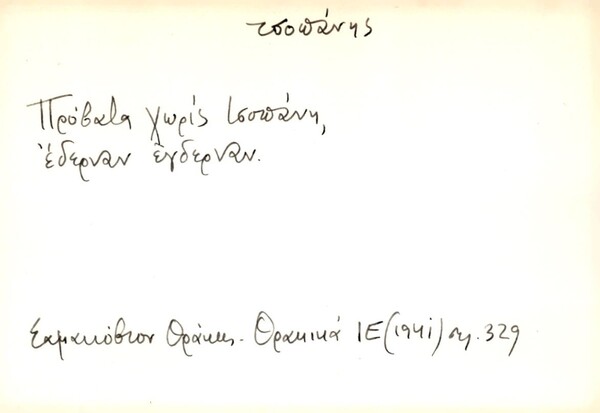 τσοπάνης
Πρόβατα χωρίς τσοπάνη,
έδερναν έγδερναν.
Σαμακόβιον Θράκης. Θρακικά ΙΕ (1941) ση. 329